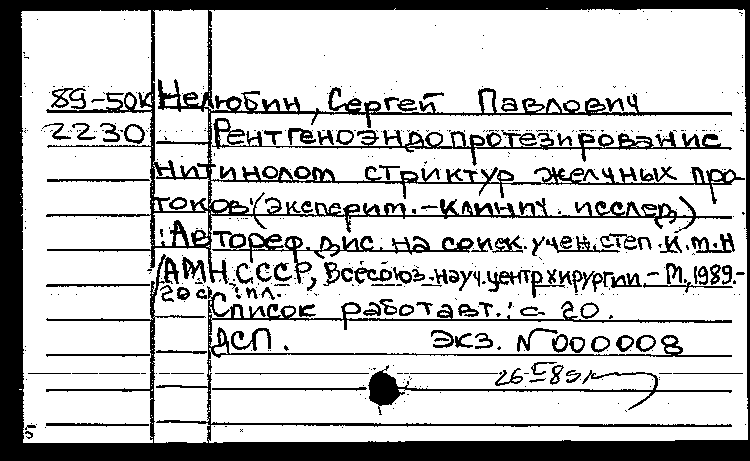 89-50к Нелюбин, Сергей Павлович
2230 Рентгеноэндопротезирование
нитинолом стриктур желчных про-
токов (эксперим.-клинич. исслед)
: Автореф. дис. на соиск. учен. степ. к.м.н
/АМН СССР, Всесоюз. науч. центр хирургии. - М., 1989.-
20 с. : ил.
Список работ авт.: с. 20.
ДСП. Экз. № 000008
5